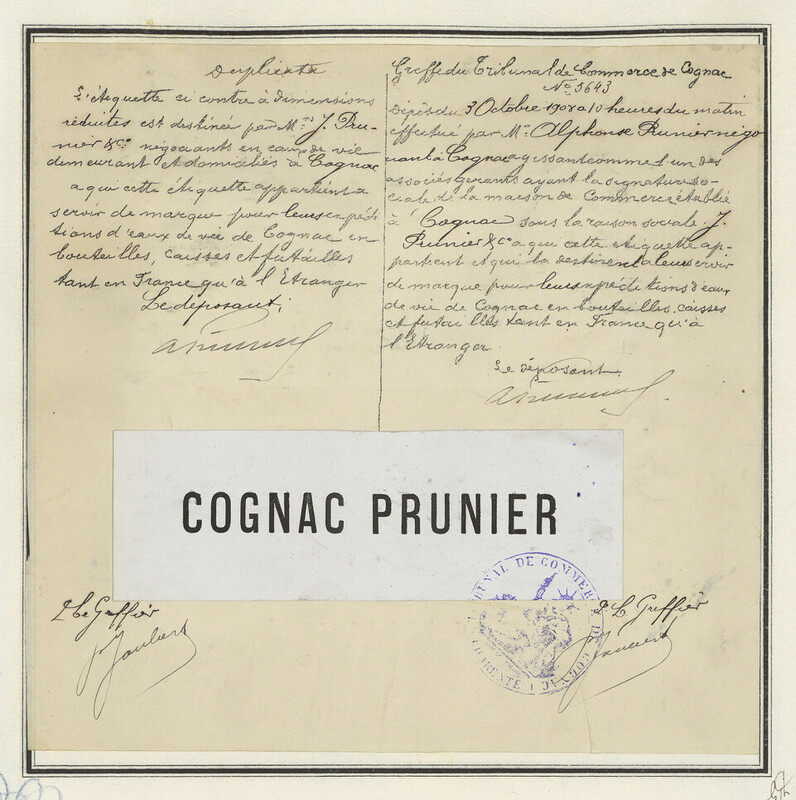 Duplicata
L'étiquette ci contre à dimensions
réduites est destinée par Mrs J. Pru-
nier & Cie négociants en eaux de vie
demeurant et domiciliés à Cognac
a qui cette étiquette appartient a
servir de marque pour leurs expédi
tions d'eaux de vie de Cognac en
bouteilles, caisses et futailles
tant en France qu'à l'Etranger
Le déposant;
Greffe du Tribunal de Commerce de Cognac
No 3643
Dépôt du 3 Octobre à 10 heures du matin
effectué par Mr Alphonse Prunier négo
ciant à Cognac agissant comme l'un des
associés gérants ayant la signature so-
ciale de la maison de Commerce établie
à Cognac sous la raison sociale J.
Prunier & Cie a qui cette étiquette ap-
partient et qui la destinent a leur servir
de marque pour leurs expéditions d'eaux
de vie de Cognac en bouteilles, caisses
et futailles tant en France qu'à
l'Etranger
Le déposant.
COGNAC PRUNIER
TRIBUNAL DE COMMERCE DE COGNAC
CHARENTE
P. Le Greffier
P. Le Greffier